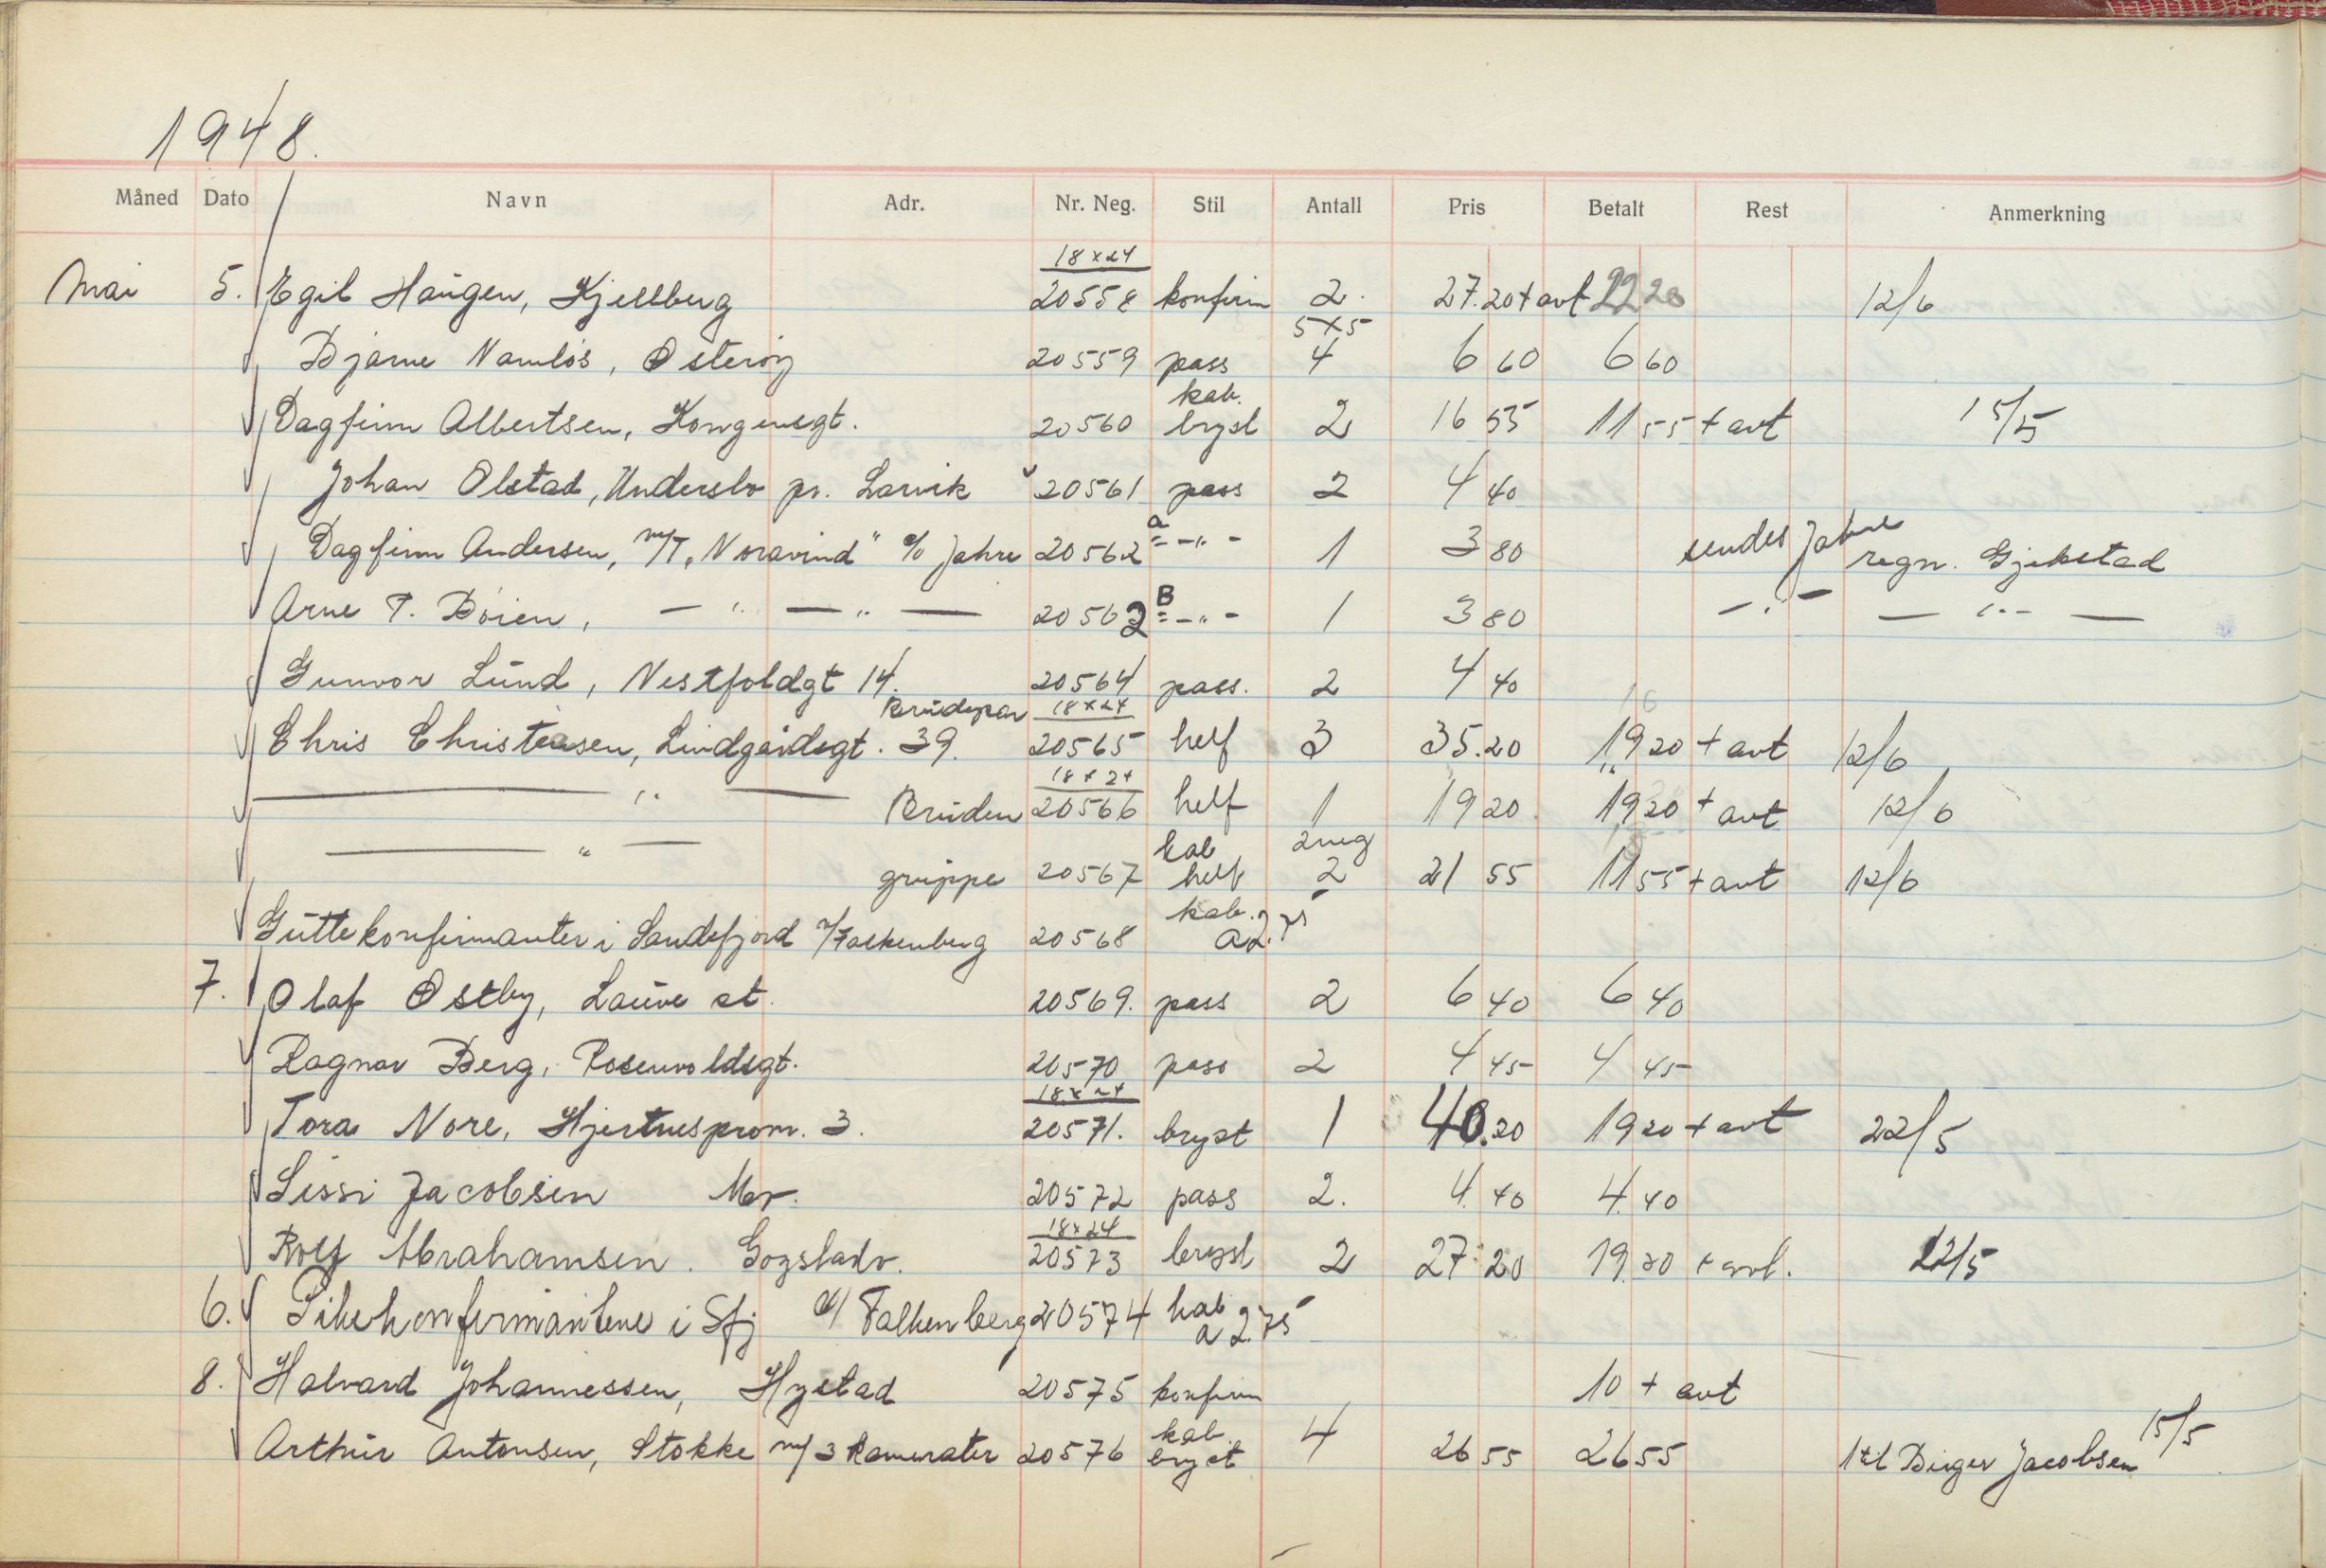 1948.
Måned Dato Navn Adr. Nr. Neg. Stil Antall Pris Betalt Rest Anmerkning
18x24
Mai 5. Egil Haugen, Kjellberg 20558 konfirm 2. 27.20 + avt 22 20 12/6
5x5
Bjarne Namløs, Østerøy 20559 pass 4 6 60 6 60
kab.
Dagfinn Albertsen, Kongensgt. 20560 bryst 2 16 55 11 55 + avt 15/5
Johan Olstad, Undersbo pr. Larvik 20561 pass 2 4 40
Dagfinn Andersen, m/T. "Noravind" c/o Jahre 20562 a = - " - 1 3 80 sendes Jahre regn. Gjekstad
Arne T. Bøien, — " — " — 20562 B = - " - 1 3 80 - " - — " — —
Gunvor Lund, Vestfoldgt 14. 20564 pass. 2 4 40
Brudepar 18x24
Chris Christensen, Lindgårdsgt. 39. 20565 helf 3 35.20 19 20 + avt 12/6
18x24
— " — Bruden 20566 helf 1 19 20 19 20 + avt 12/6
kab 2 neg
— " — gruppe 20567 helf 2 21 55 11 55 + avt 12/6
kab.
Guttekonfirmanter i Sandefjord v/Falkenberg 20568 a 2.75
7. Olaf Østby, Lauve st. 20569. pass 2 6 40 6 40
Ragnar Berg, Rosenvoldsgt. 20570 pass 2 4 45 4 45
18x24
Tora Nore, Hjertnesprom. 3. 20571. bryst 1 40.20 19 20 + avt 22/5
Lissi Jacobsen Mor. 20572 pass 2. 4. 40 4. 40
18x24
Rolf Abrahamsen. Gogstadv. 20573 bryst 2 27 20 19. 20 + avt. 22/5
6. Pikekonfirmantene i Sfj v/ Falkenberg 20574 kab
a 2.75
8. Halvard Johannessen, Hystad 20575 konfirm 10 + avt
kab 15/5
Arthur Antonsen, Stokke m/ 3 Kamerater 20576 bryst 4 26 55 26 55 1 til Birger Jacobsen